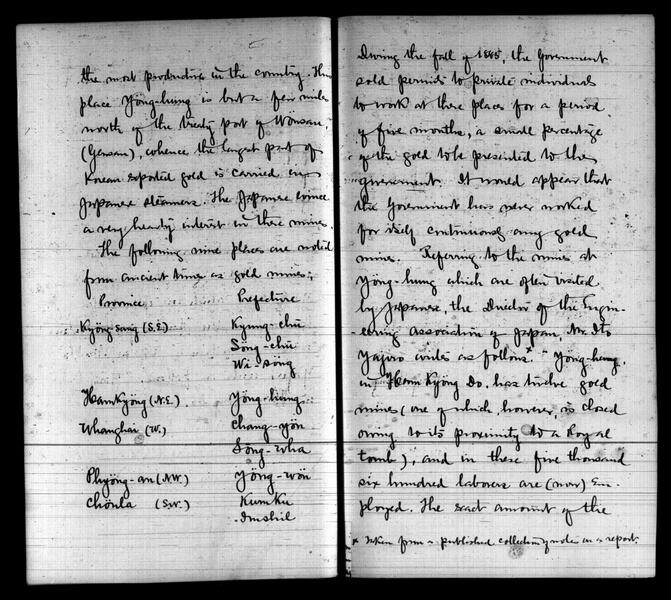 the most productive in the country. This
place Yöng-hung is but a few miles
north of the treaty port of Wönsan,
(Gensan), whence the largest part of
Korean exported gold is carried in
Japanese steamers. The Japanese evince
a very heavy interest in these mines.
The following nine places are noted
from ancient times as gold mines;
Province Prefecture
Kyöng-sang (S.E.) Kyung-chū
Söng-chū
Wi-söng
HamKyöng (N.E.) Yöng-hung
Whanghai (W.) Chang-yön
Söng-wha
Phyöng-an (N.W.) Yöng-wön
Chönla (S.W.) KumKu
Imshil
During the fall of 1885, the Government
sold permits to private individuals
to work at these places for a period
of five months, a small percentage
of the gold to be presented to the
government. It would appear that
the Government has never worked
for itself continuously any gold
mines. Referring to the mines at
Yöng-hung which are often visited
by Japanese, the Director of the Engin-
eering association of Japan, Mr. Ito
Yajiro writes as follows.* "Yöng-hung,
in Ham Kyöng Do, has twelve gold
mines (one of which, however, is closed
owing to its proximity to a Royal
tomb), and in these five thousand
six hundred laborers are (now) em-
ployed. The exact amount of the
* Taken from a published collection of notes in a report.